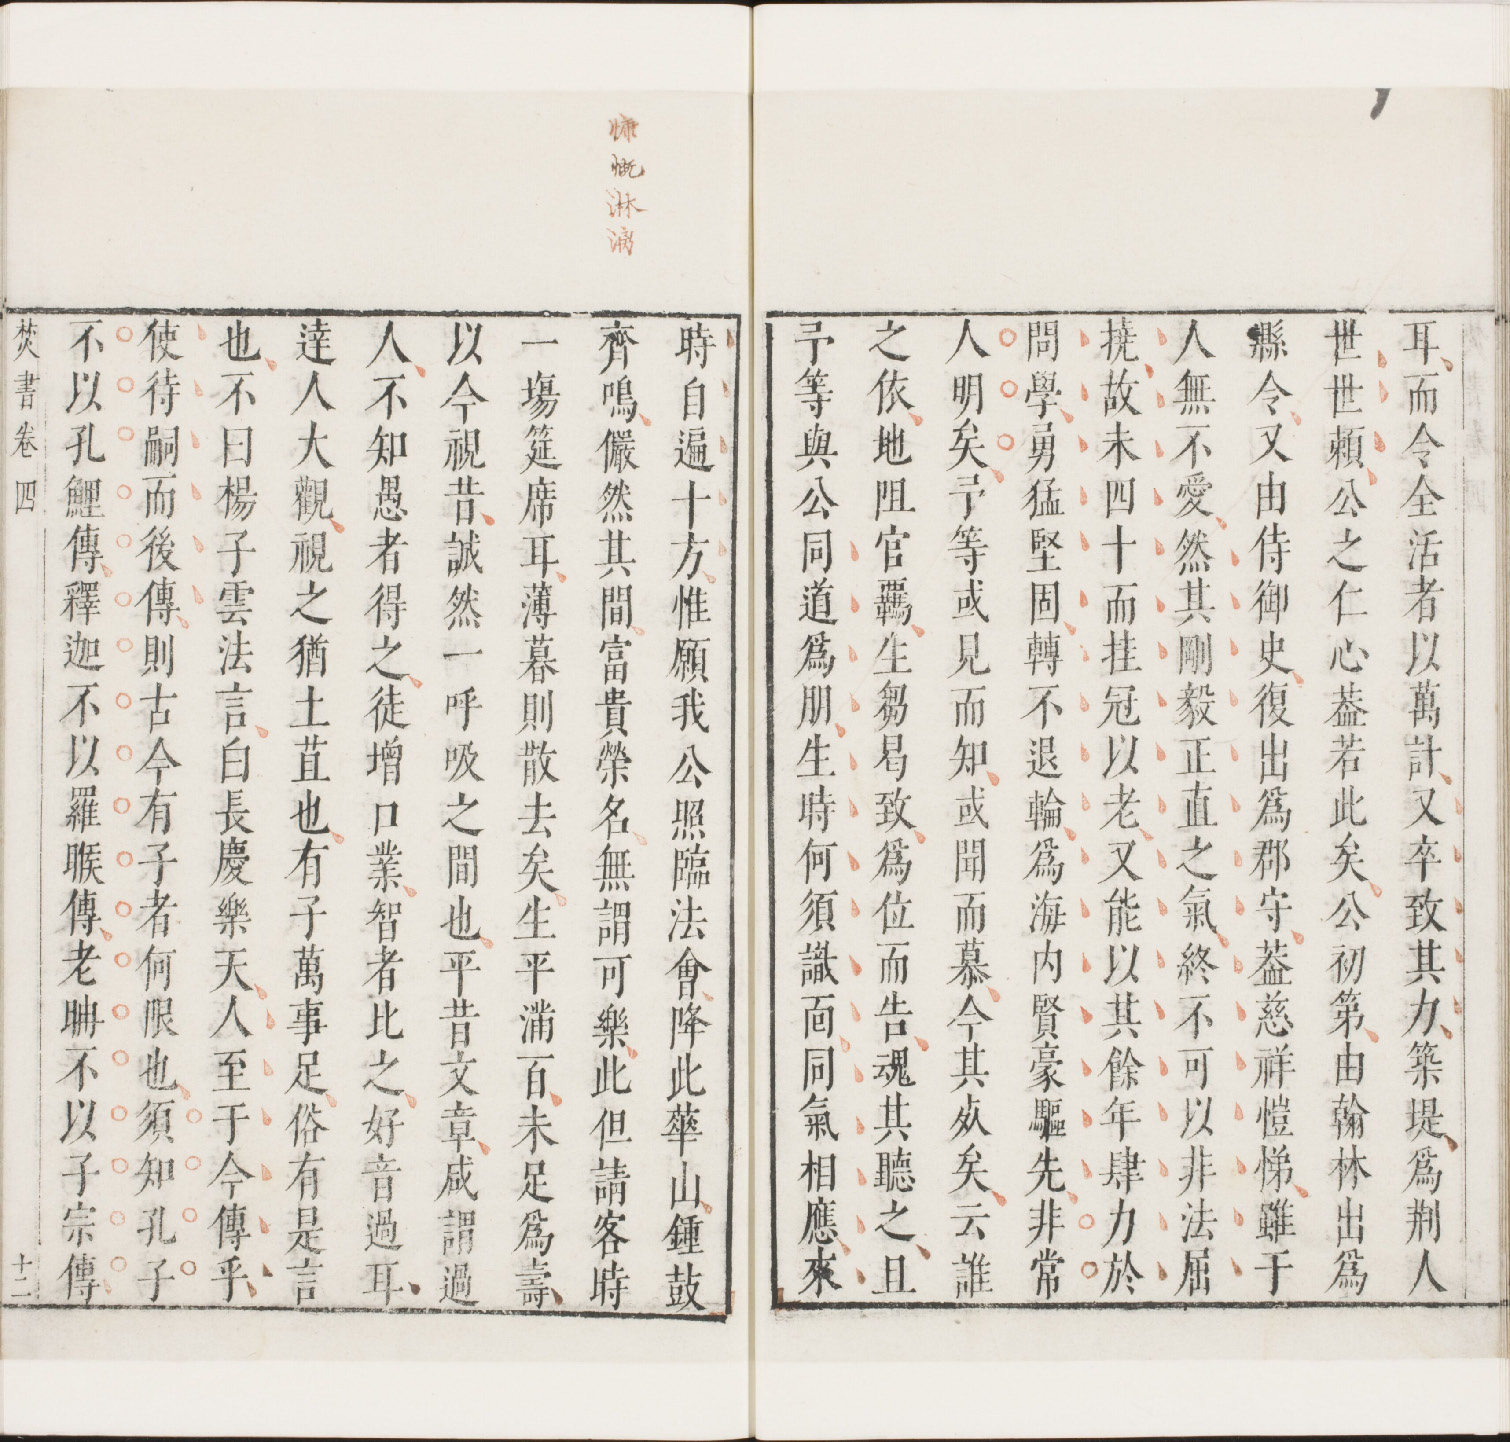 耳而令全活者以萬計又卒致其力築堤爲荆人
世世賴公之仁心葢若此矣公初第由翰林出爲
縣令又由侍御史復出爲郡守葢慈祥愷悌雖于
人無不愛然其剛毅正直之氣終不可以非法屈
撓故未四十而挂冠以老又能以其餘年肆力於
問學勇猛堅固轉不退輪爲海内賢豪驅先非常
人明矣予等或見而知或聞而慕今其亦矣云誰
之依地阻官羈生芻曷致爲位而告魂其聽之且
予等與公同道爲朋生時何須識面同氣相應來
時自遍十方惟願我公照臨法會降此華山鍾鼓
慷慨淋漓
齊鳴儼然其間富貴榮名無謂可樂此但請客時
一塲筵席耳薄暮則散去矣生平滿百未足爲壽
以今視昔誠然一呼吸之間也平昔文章咸謂過
人不知愚者得之徒增口業智者比之好音過耳
達人大觀視之猶土苴也有子萬事足俗有是言
也不曰楊子雲法言白長慶樂天人至于今傳乎
使待嗣而後傳則古今有子者何限也須知孔子
不以孔鯉傳釋迦不以羅睺傳老聃不以子宗傳
焚書卷四
十二